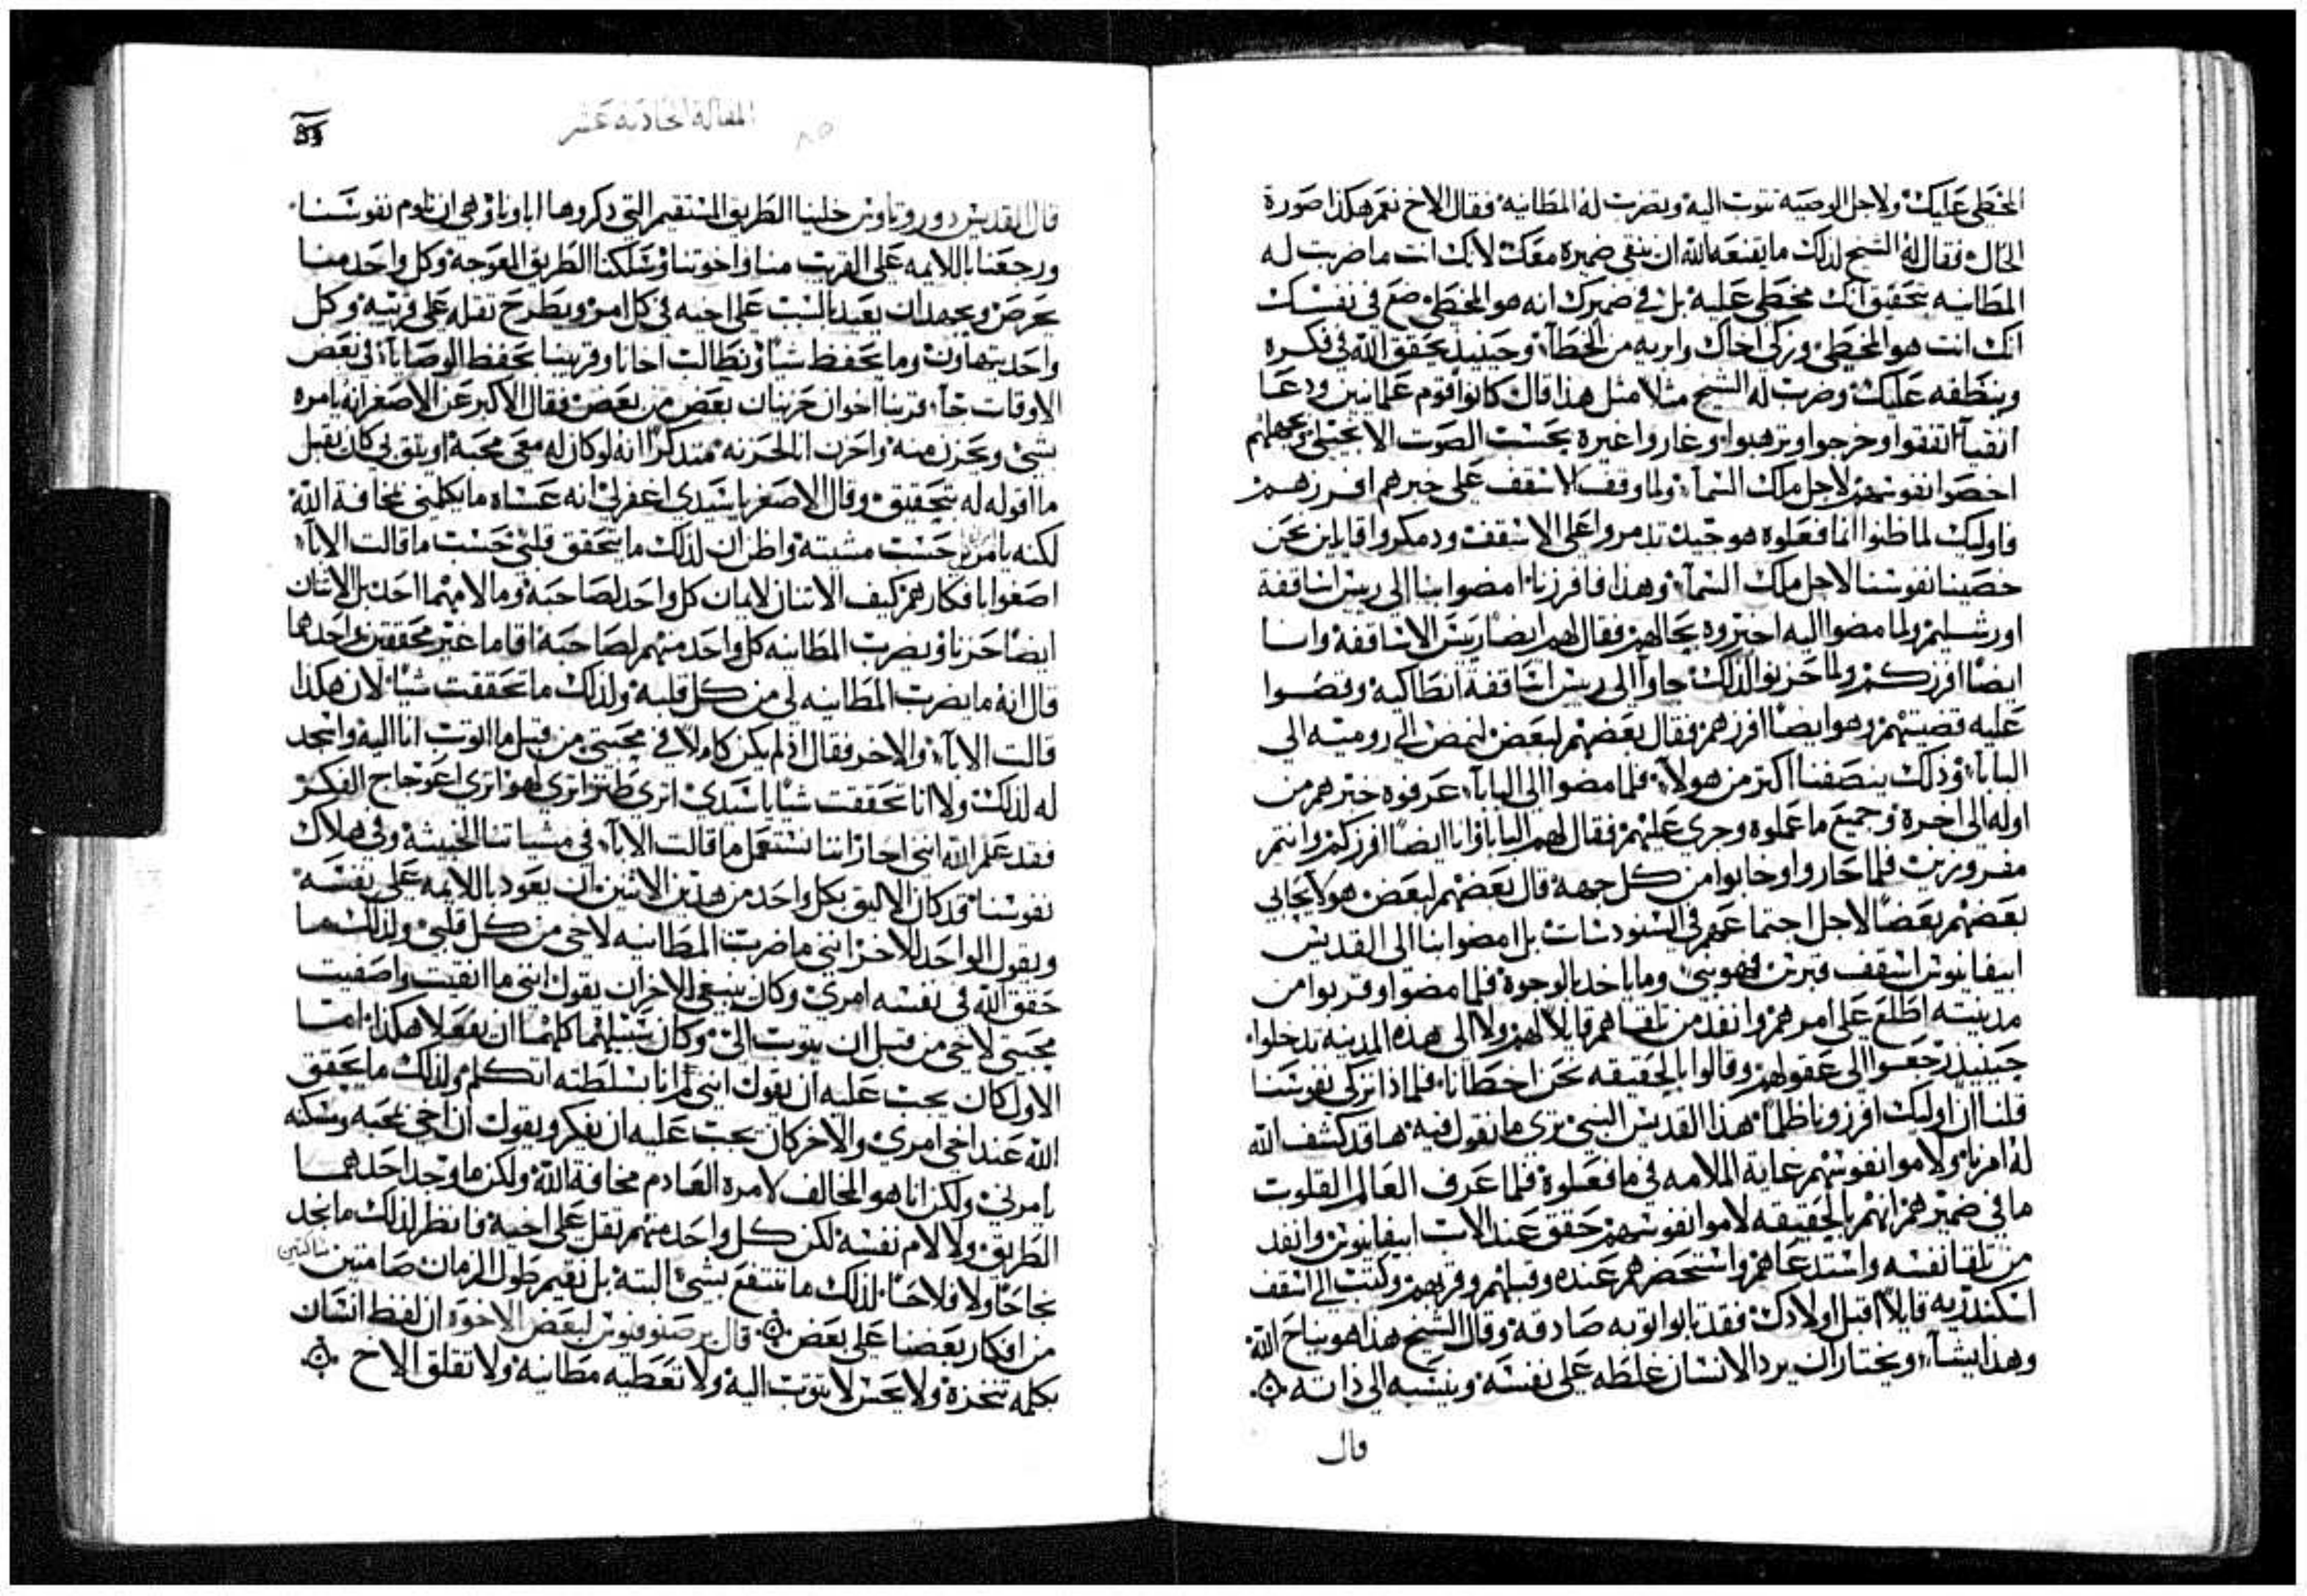 المخطي عليك ولاجل الوصيه تتوب اليه وتضرب له المطانيه فقال الاخ نعم هكذا صورة
الحال فقال له الشيخ لذلك ما يقنعه الله ان ينقي ضميره معك لانك انت ما ضربت له
المطانيه بتحقيق انك مخطي عليه بل في ضميرك انه هو المخطي ضع في نفسك
انك انت هو المخطي وزكي اخاك وابريه من الخطآ وحينيذ يحقق الله في فكره
وينظفه عليك وضرب له الشيخ مثلا مثل هذا قال كانوا قوم علمانيين ودعا
اتقيآ اتفقوا وخرجوا وترهبوا وغاروا غيرة بحسب الصوت الانجيلي وبجهلهم
اخصوا نفوسهم لاجل ملك السمآ ولما وقف الاسقف على خبرهم افرزهم
فاوليك لما ظنوا انما فعلوه هو جيد تدمروا على الاسقف ودمكروا قايلين نحن
خصينا نفوسنا لاجل ملك السمآ وهذا فافرزنا امضوا بنا الى ريس اساقفة
اورشليم ولما مضوا اليه اخبروه بحالهم فقال لهم ايضا ريس الاساقفة وانا
ايضا افرزكم ولما حزنوا لذلك جاوا الى ريس اساقفة انطاكية وقصوا
عليه قضيتهم وهو ايضا افرزهم فقال بعضهم لبعض لنمض الى روميه الى
البابا وذلك ينصفنا اكثر من هولآ فلما مضوا الى البابا عرفوه خبرهم من
اوله الى اخره وجميع ما عملوه وجري عليهم فقال لهم البابا وانا ايضا افرزكم وانتم
مفروزين فلما حاروا وخابوا من كل جهة قال بعضهم لبعض هولا يحابي
بعضهم بعضا لاجل اجتماعهم في السنودسات بل امضوا بنا الى القديس
ابيفانيوس اسقف قبرس فهو نبي وما ياخد بالوجوه فلما مضوا وقربوا من
مدينته اطلع على امرهم وانفد من تلقاهم قايلا لهم ولا الى هذه المدينه تدخلوا
حينيذ رجعوا الى عقولهم وقالوا بالحقيقه نحن اخطانا فلماذا نزكي نفوسنا
قلنا ان اوليك افرزونا ظلما هذا القديس النبي تري ما نقول فيه ها قد كشف الله
له امرنا ولاموا نفوسهم غاية الملامه في ما فعلوه فلما عرف العالم القلوب
ما في ضميرهم انهم بالحقيقه لاموا نفوسهم حقق عند الاب ابيفانيوس وانفد
من تلقا نفسه واستدعاهم واستحضرهم عنده وقبلهم وقربهم وكتب الى اسقف
اسكندريه قايلا اقبل اولادك فقد تابوا توبه صادقه وقال الشيخ هذا هو نياح الله
وهذا يشآ ويختار ان يرد الانسان غلطه على نفسه وينسبه الى ذاته
قال
المقالة الحادية عشر
٨٥
قال القديس دوروتاوس خلينا الطريق المستقيم التي ذكروها ابآونا وهي ان نلوم نفوسنا
ورجعنا باللايمه على القريب منا واخوتنا وسلكنا الطريق المعوجة وكل واحد منا
يحرص ويجهد ان يعيد السبب على اخيه في كل امر ويطرح تقله على قريبه وكل
واحد يتهاون وما يحفظ شيا ونطالب اخانا وقريبنا بحفظ الوصايآ في بعض
الاوقات جآ قربنا اخوان حزنان بعض من بعض فقال الاكبر عن الاصغر انه يامره
بشي ويحزن منه واحزن انا لحزنه متدكرا انه لو كان له معي محبة او يثق بي كان يقبل
ما اقوله له بتحقيق وقال الاصغر يا سيدي اغفر لي انه عساه ما يكلمني بمخافة الله
لكنه يامرني حسب مشيته واظن ان لذلك ما يتحقق قلبي حسب ما قالت الابآ
اصغوا بافكارهم كيف الاتنان لايمان كل واحد لصاحبه وما لام منهما احد بل الاتنان
ايضا حزنا وبضرب المطانيه كل واحد منهم لصاحبه اقاما غير محققين واحدهما
قال انه ما يضرب المطانيه لي من كل قلبه ولذلك ما تحققت شيا لان هكذا
قالت الابآ والاخر فقال اذ لم يكن كاملا في محبتي من قبل ما اتوب انا اليه واسجد
له لذلك ولا انا تحققت شيا يا سيدي اتري طنزا تري لهوا تري اعوجاج الفكر
فقد علم الله انني اجازا اننا نستعمل ما قالت الابآ في مشياتنا الخبيثة وفي هلاك
نفوسنا قد كان الاليق بكل واحد من هذين الاثنين ان يعود باللايمه على نفسه
ويقول الواحد للاخر انني ما ضربت المطانيه لاخي من كل قلبي ولذلك ما
حقق الله في نفسه امري وكان ينبغي للاخر ان يقول انني ما انقيت واصفيت
محبتي لاخي من قبل ان يتوب الي وكان سبيلهما كلهما ان يفعلا هكذا اما
الاول كان يجب عليه ان يقول انني انا بسلطنه اتكلم ولذلك ما يحقق
الله عند اخي امري والاخر كان يجب عليه ان يفكر ويقول ان اخي بمحبه ومسكنه
يامرني ولكن انا هو المخالف لامره العادم مخافة الله ولكن ما وجد احدهما
الطريق ولا لام نفسه لكن كل واحد منهم تقل على اخيه فانظر لذلك ما نجد
نجاحا ولا فلاحا لذلك ما ننتفع بشي البتة بل نقيم طول الزمان صامتين ساكتين
من افكار بعضنا على بعض قال برصنوفيوس لبعض الاخوة ان لفظ انسان
بكلمه تنخزه ولا يحس لا تتوب اليه ولا تعطيه مطانيه ولا تقلق الاخ